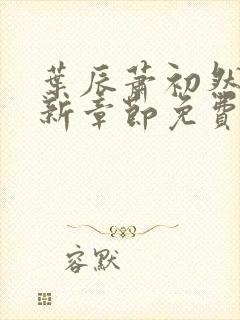 葉辰蕭初然
新章節免費
容默